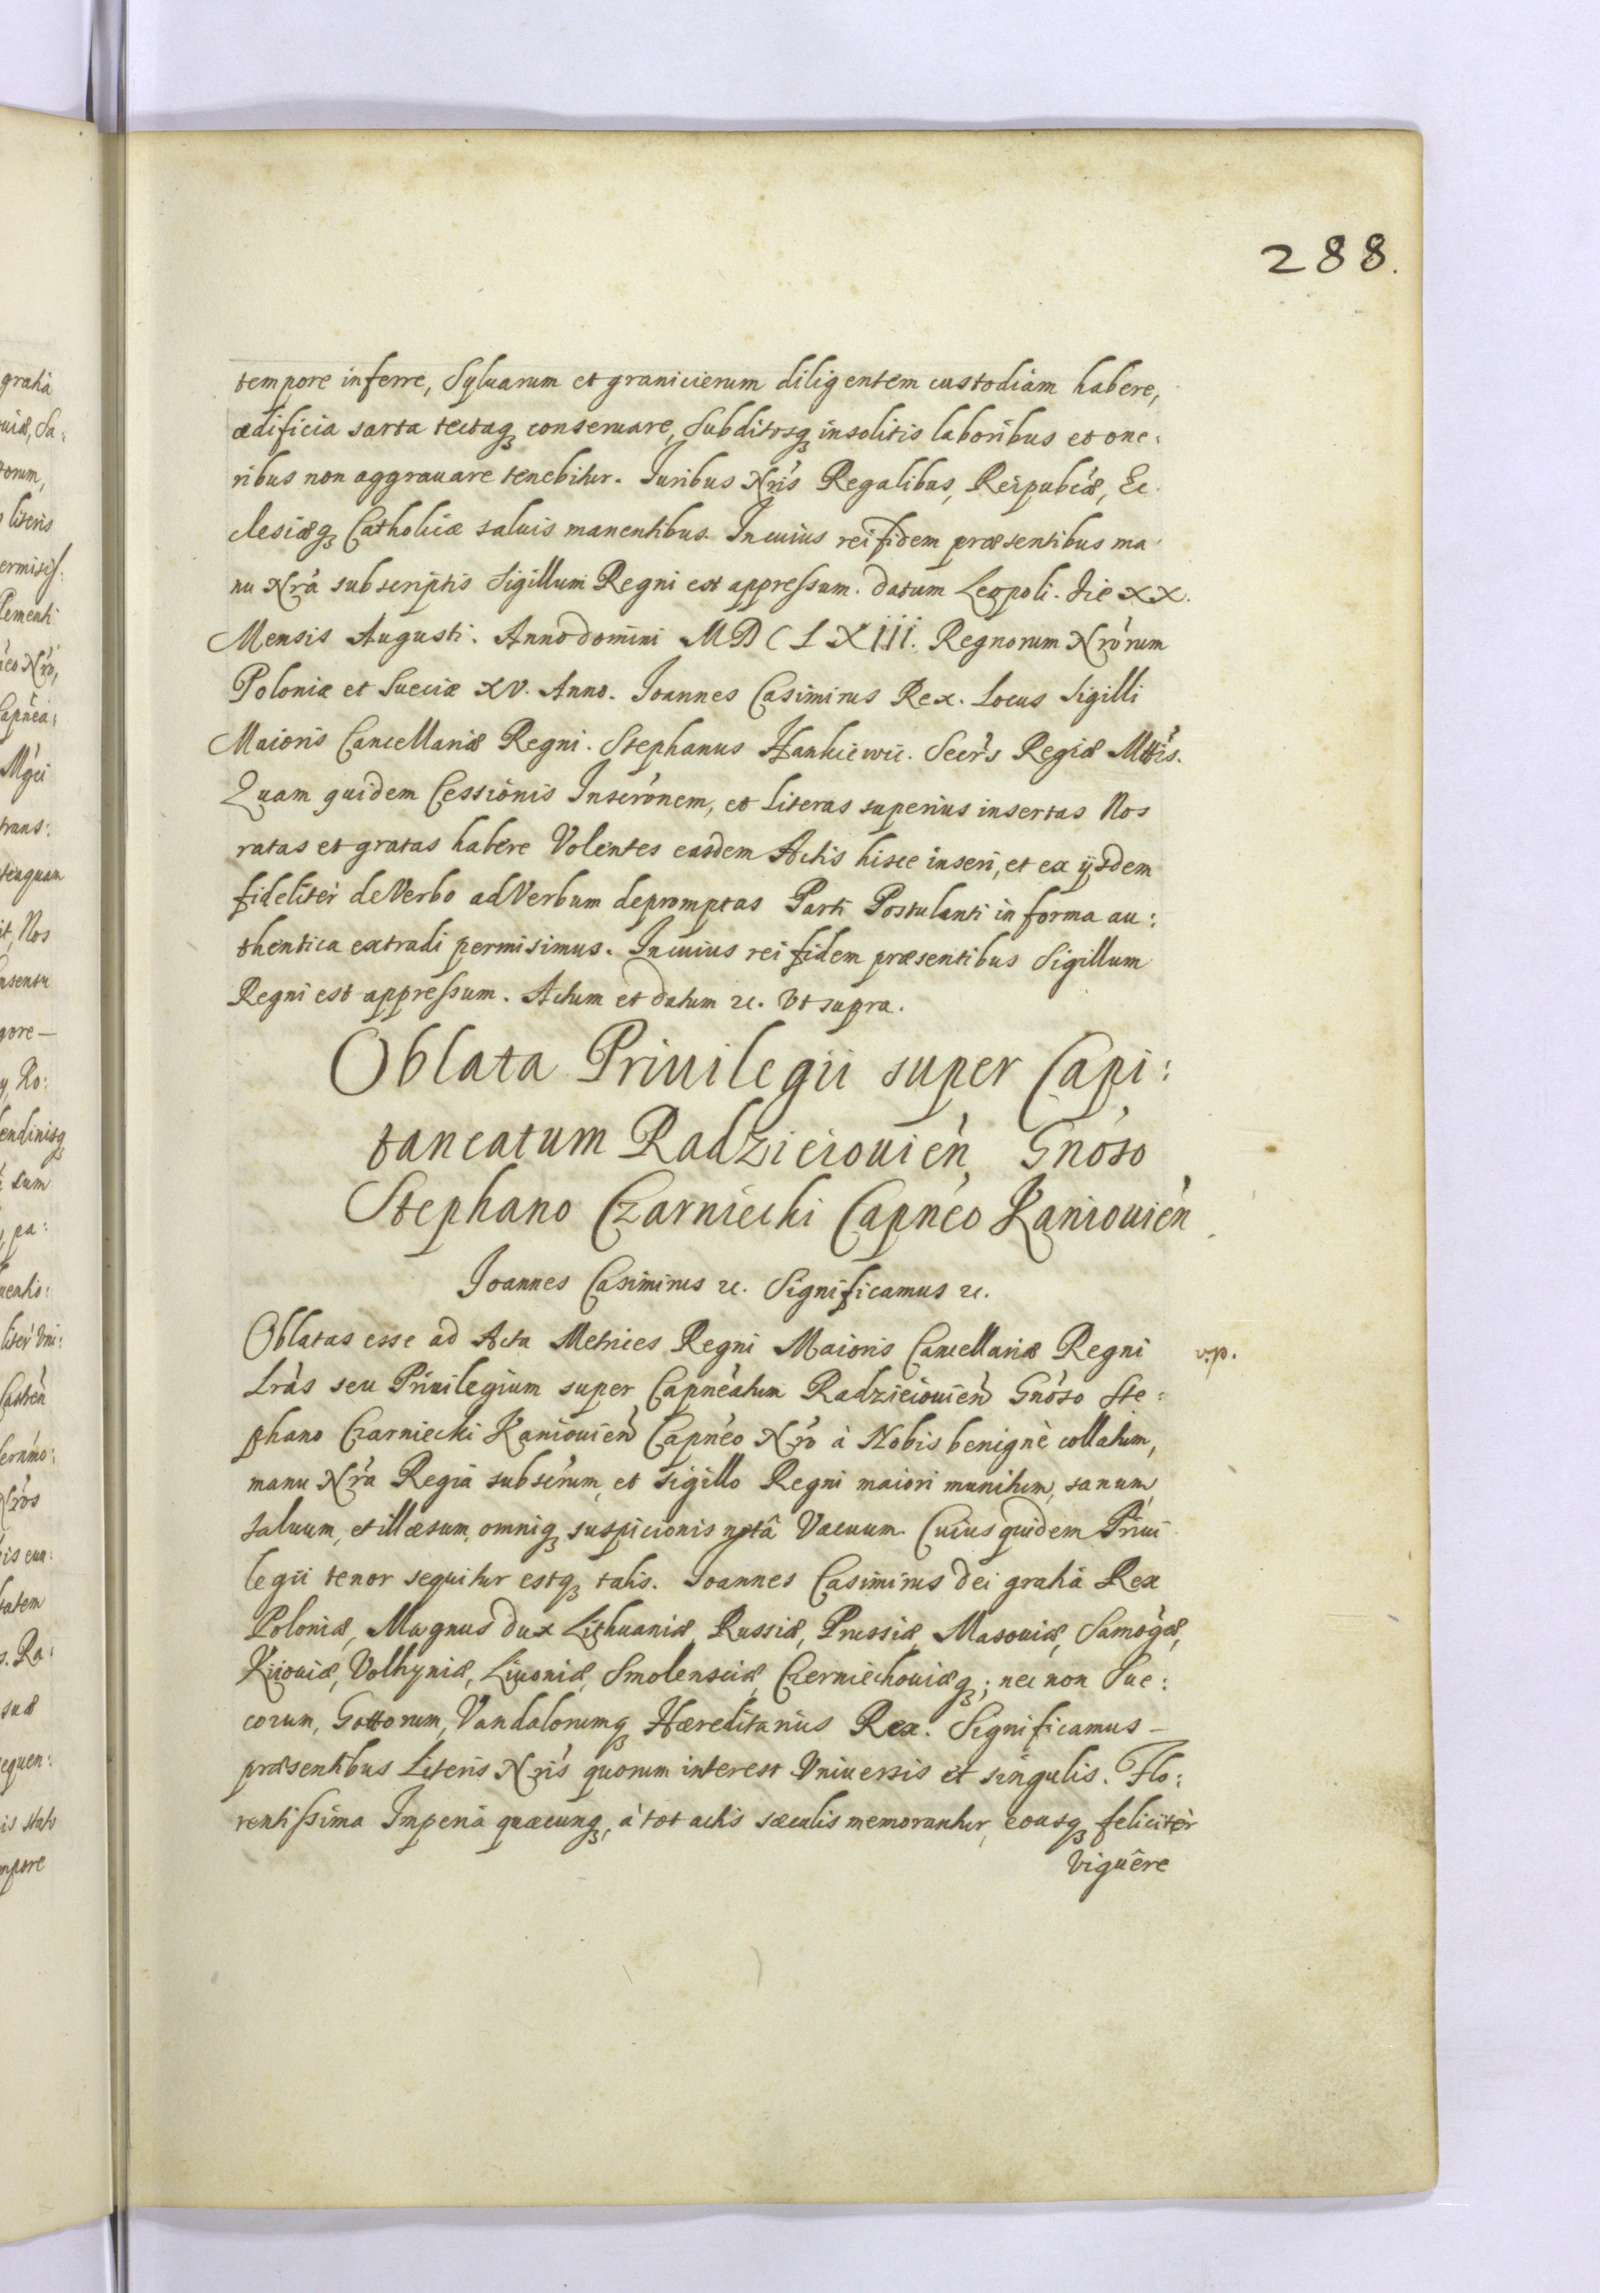 288.
tempore inferre, Syluarum et granicierum diligentem custodiam habere,
ædificia sarta tectaq₃ conseruare, Subditosq₃ insolitis laboribus et one:
ribus non aggrauare tenebitur. Juribus Nris Regalibus, Reipubcæ, Ec
clesiæq₃ Catholicæ saluis manentibus. In cuius rei fidem præsentibus ma
nu Nra subscriptis Sigillum Regni est appressum. Datum Leopoli. Die XX.
Mensis Augusti. Anno domini MDCLXiii. Regnorum Nrorum
Poloniæ et Sueciæ XV. Anno. Joannes Casimirus Rex. Locus Sigilli
Maioris Cancellariæ Regni. Stephanus Hankiewic. Secrs Regiæ Mttis.
Quam quidem Cessionis Inscronem, et Literas superius insertas Nos
ratas et gratas habere Volentes easdem Actis hisce inseri, et ex ijsdem
fideliter de Verbo ad Verbum depromptas Parti Postulanti in forma au:
thentica extradi permisimus. In cuius rei fidem præsentibus Sigillum
Regni est appressum. Actum et datum &c. Vt supra.
Oblata Priuilegii super Capi:
taneatum Radzieiouien Gnoso
Stephano Czarniecki Capneo Kaniouien
Joannes Casimirus &c. Significamus &c.
Oblatas esse ad Acta Metrices Regni Maioris Cancellariæ Regni
v.p.
Lras seu Priuilegium super Capneatum Radzieiouien Gnoso Ste:
phano Czarniecki Kaniouien Capneo Nro à Nobis benignè collatum,
manu Nra Regia subscrum, et sigillo Regni maiori munitum, sanum,
saluum, et illæsum, omniq₃ suspicionis notâ Vacuum. Cuius quidem Priui
legii tenor sequitur estq₃ talis. Joannes Casimirus Dei gratia Rex
Poloniæ, Magnus Dux Lithuaniæ, Russiæ, Prussiæ, Masouiæ, Samogæ,
Kiiouiæ, Volhyniæ, Liuoniæ, Smolensciæ, Czerniechouiæq₃; nec non Sue:
corum, Gottorum, Vandalorumq₃ Hæreditarius Rex. Significamus –
præsentibus Literis Nris quorum interest Vniuersis et singulis. Flo:
rentissima Imperia quæcunq₃, à tot actis sæculis memorantur, eousq₃ feliciter
Viguêre